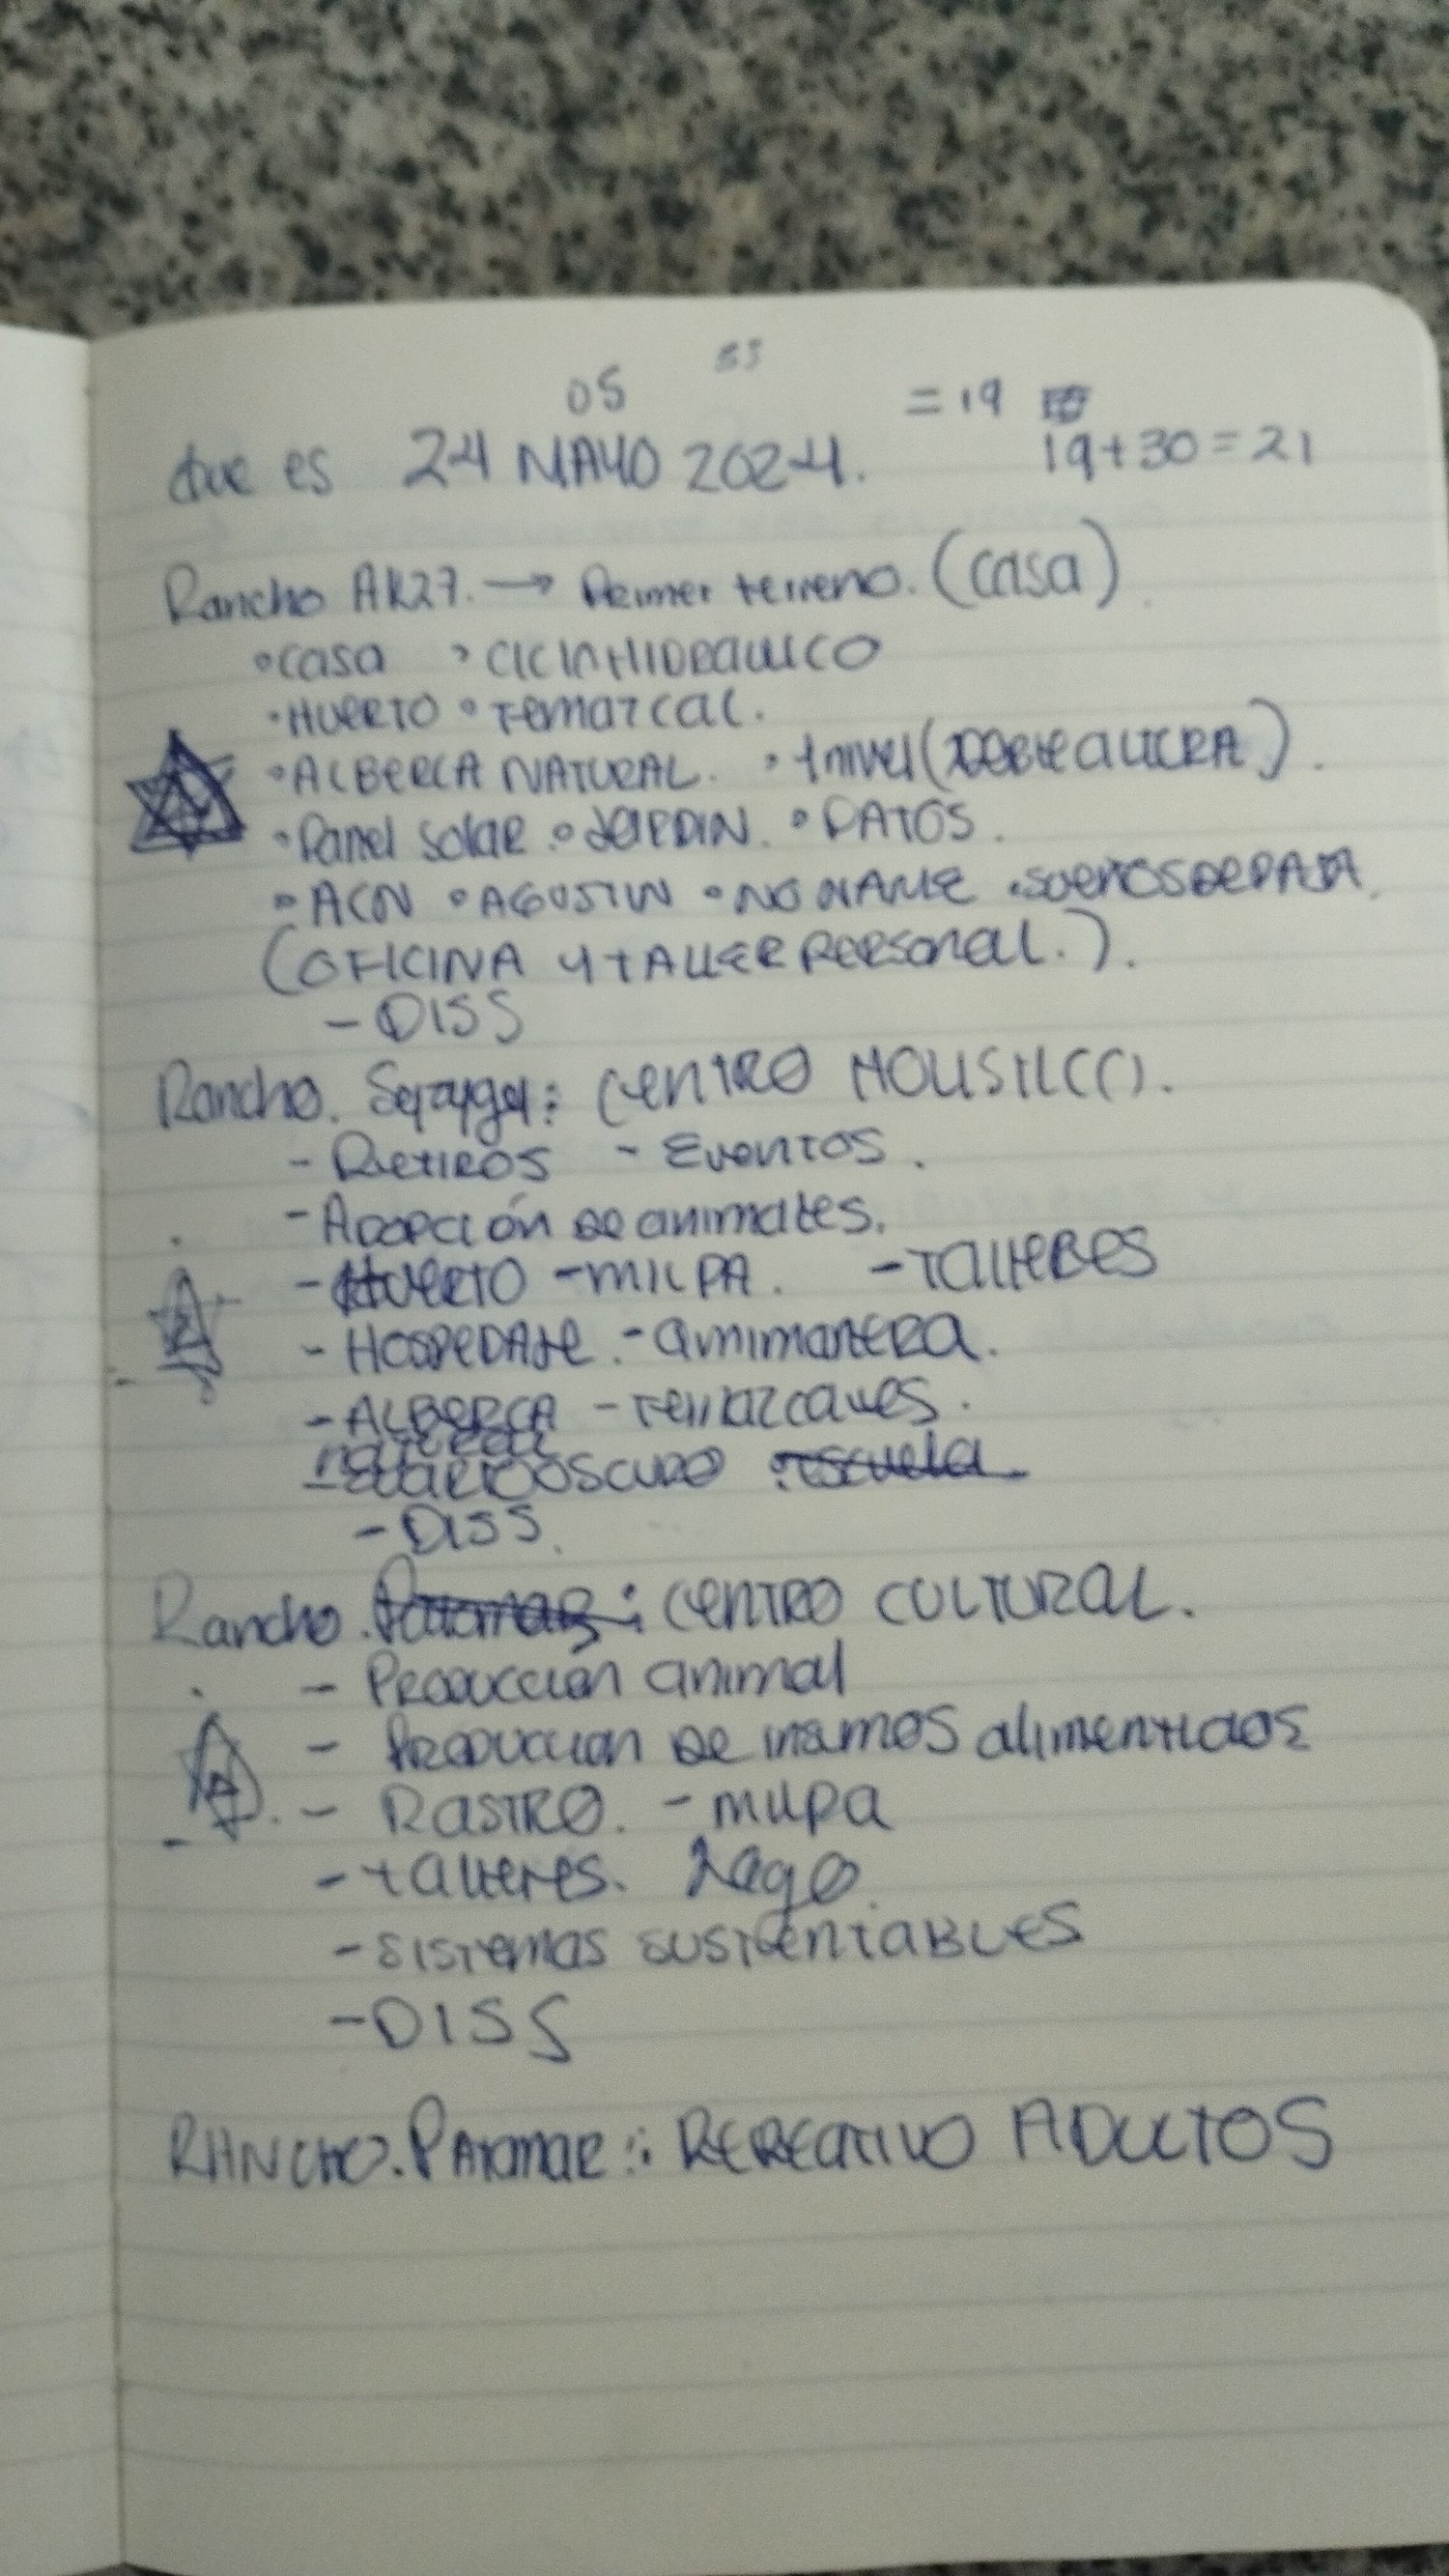 05
= 19
que es 24 MAYO 2024. 19+30=21
Rancho AK27. → Primer terreno. (casa)
•casa • CICLO HIDRAULICO
•HUERTO • TEMAZCAL.
•ALBERCA NATURAL. •1 nivel (DOBLE ALTURA).
•Panel solar • JARDIN. • PATOS.
•ACN •AGUSTIN •NO NAME •SUEÑOS DE PAJA.
(OFICINA Y TALLER PERSONAL.).
- DISS
Rancho. : CENTRO HOLISTICO.
- RETIROS - EVENTOS.
- ADOPCIÓN DE animales.
- HUERTO - MILPA. - TALLERES
- HOSPEDAJE. -
- ALBERCA - TEMAZCALES.
natural
- CLAROOSCURO escuela
- DISS.
Rancho. Patomar : CENTRO CULTURAL.
- PRODUCCIÓN animal
- PRODUCCION DE insumos alimenticios
- RASTRO. - milpa
- talleres. Lago
- SISTEMAS SUSTENTABLES
- DISS
RANCHO. PATOMAR : RERECATIVO ADULTOS